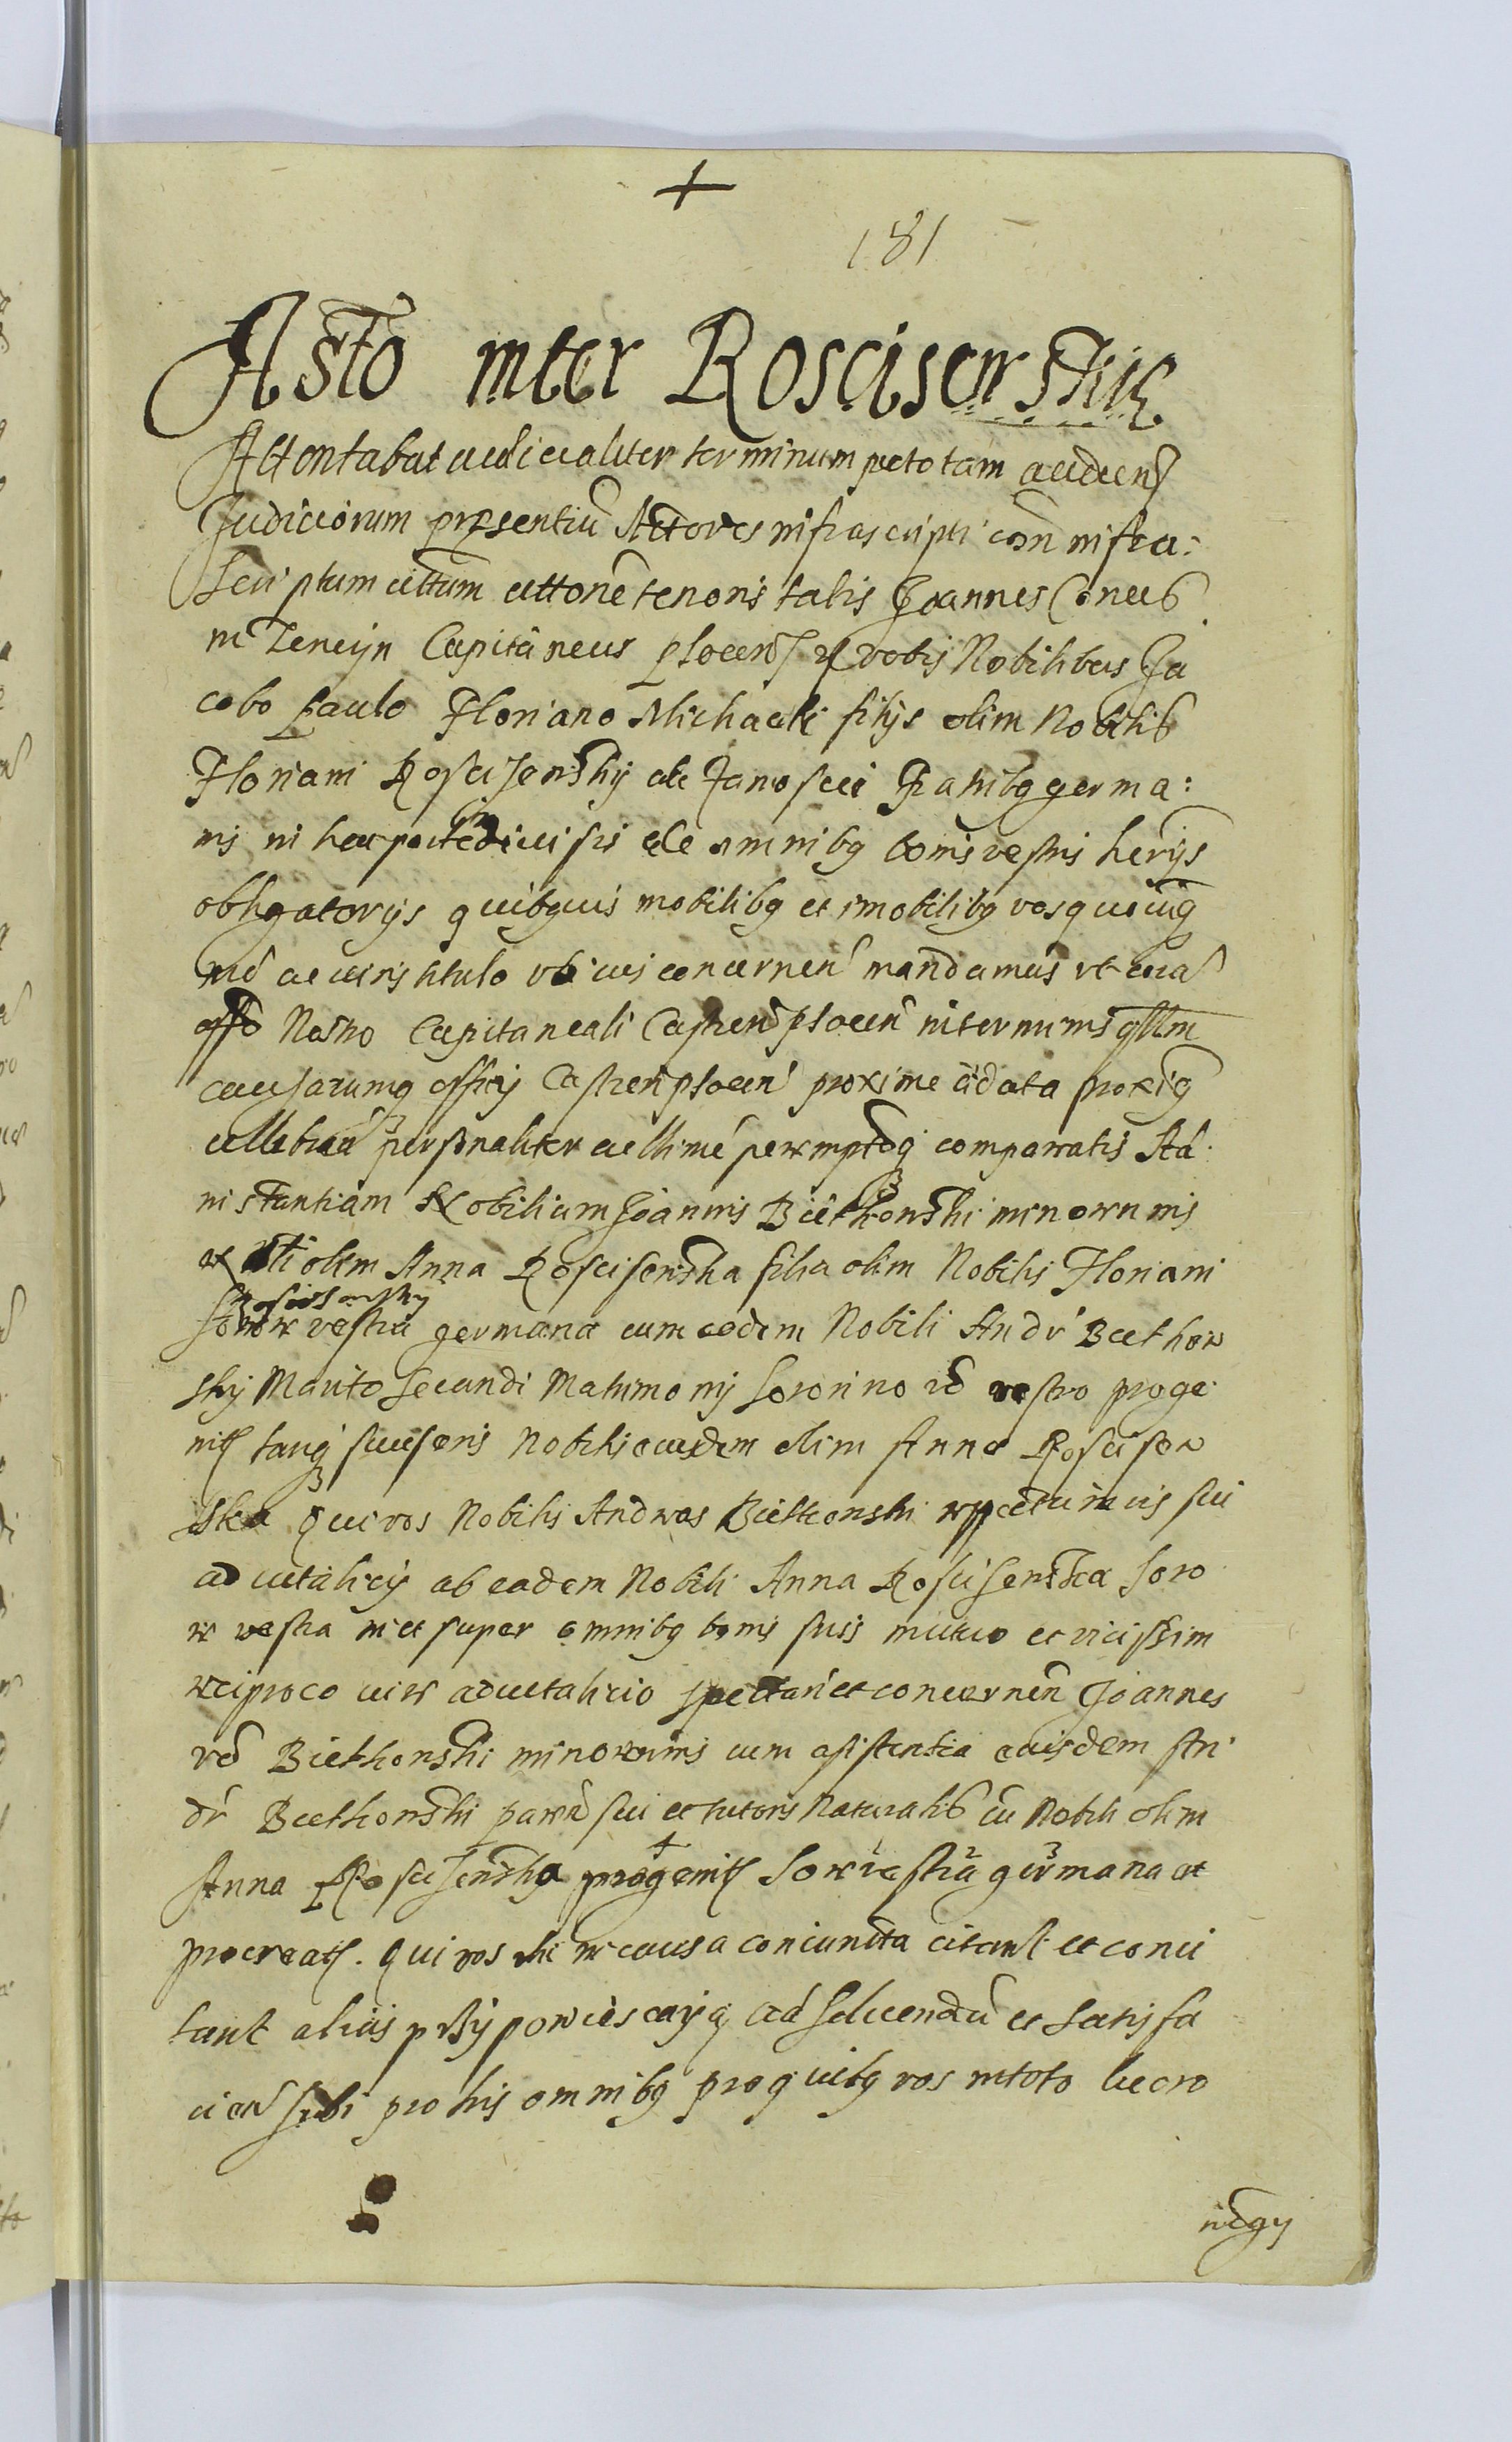 +
181
Asto inter Roscisenskie
Attentabat iudicialiter terminum peto tam audien
Judiciorum presentiu Actores infrascripti con infra:
scriptum cittone tenoris talis Joannes
in Tencyn Capitaneus plocen vobis Nobilibus Ja
cobo Paulo Floriano Michaeli filijs olim Nobilis
Floriani Roscisenskij de Janoscei Fratribq germa:
nis in hac parte indivisis de omnibq bonis vestris herijs
obligatorijs quibquis mobilibq et imobilibq vos quoviq
ac iuris titulo vbivis concernen mandamus vt cora
offo Nostro Capitaneali Castren plocen in terminis qllm
causarumq officij Castren plocen proxime a data proxiq
celebran personaliter pereemptoq compareatis Ad
instantiam Nobilium Joannis Bietkonski minorennis
et olim Anna Roscisenska filia olim Nobilis Floriani
Roscisensky
sorore vestra germana cum eodem Nobili Andr Bietkon
skij Marito secundi Matrimonij sororino vero vestro proge
nit tanq sucesoris Nobilis eiusdem olim Anna Roscisen
ska Qui vos Nobilis Andreas Bietkonski respectu iuris sui
advitalicij ab eadem Nobili Anna Roscisenska soro
re vestra in et super omnibq bonis suis mutuo et vicissim
reciproco iure advitalicio spectan et concernen Joannes
vero Bietkonski minorennis cum asistentia eiusdem An
dr Bietkonski paren sui et tutoris Naturalis cu Nobili olim
Anna Roscisenska progenit sore vestra germana et
procreat. Qui vos in causa coniuncta citant et conci
tant ad solvendu et satisfa
cien sibi pro his omnibq pro quibq vos in toto lucro